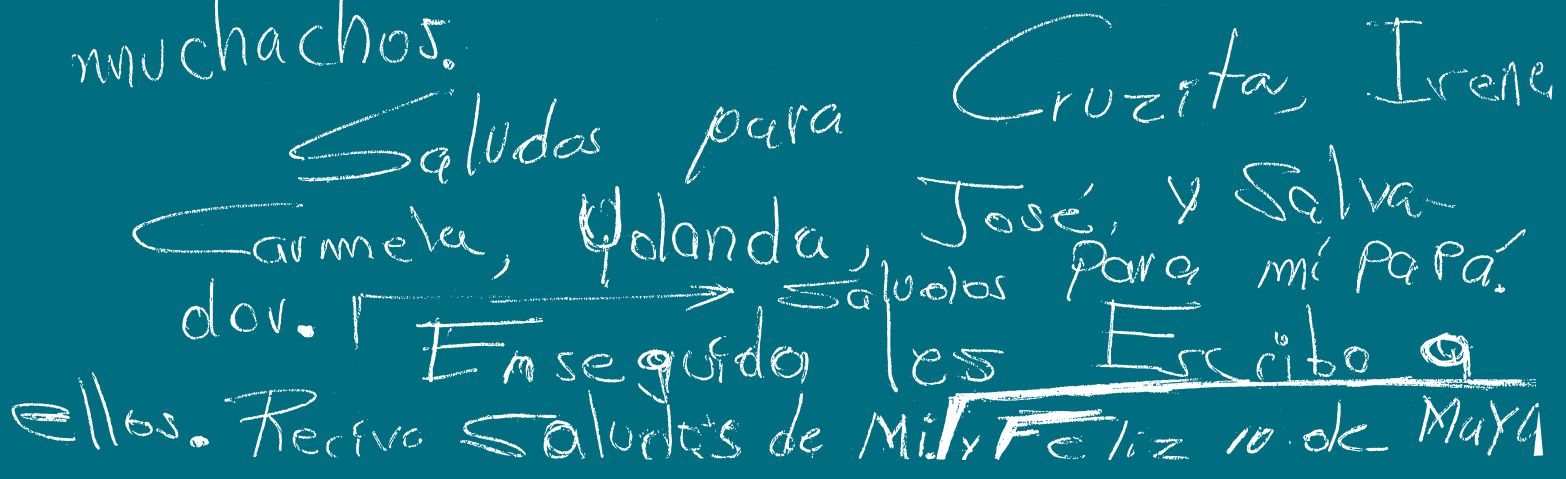 muchachos.
Saludos para Cruzita, Irene
Carmela, Yolanda, José, y Salva-
dor. Saludos para mí papá.
Enseguida les Escribo a
ellos. Reciva Saludos de Mi y Feliz 10 de MaYo